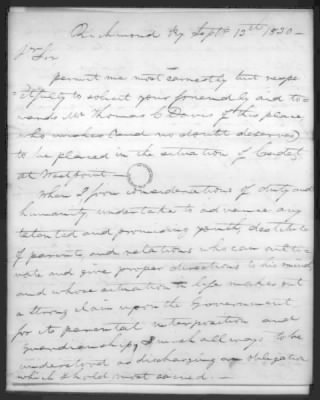 Richmond Ky Sept 12th 1830 –
Dr Sir
permit me most earnestly but respe-
=ctfully to solicit your friendly aid to-
wards Mr Thomas C Davis of this place
who wishes (and no doubt deserves)
to be placed in the situation of Cadet
at Westpoint —
When I from considerations of duty and
humanity undertake to advance any
talented and promising youth, destitute
of parents, and relations who can
and give proper directions to his mind,
and whose situation in life makes out
a strong claim upon the Government
for its parental interposition and
Guardianship, I wish all ways to be
understood as discharging an obligation
which I hold most sacred. —